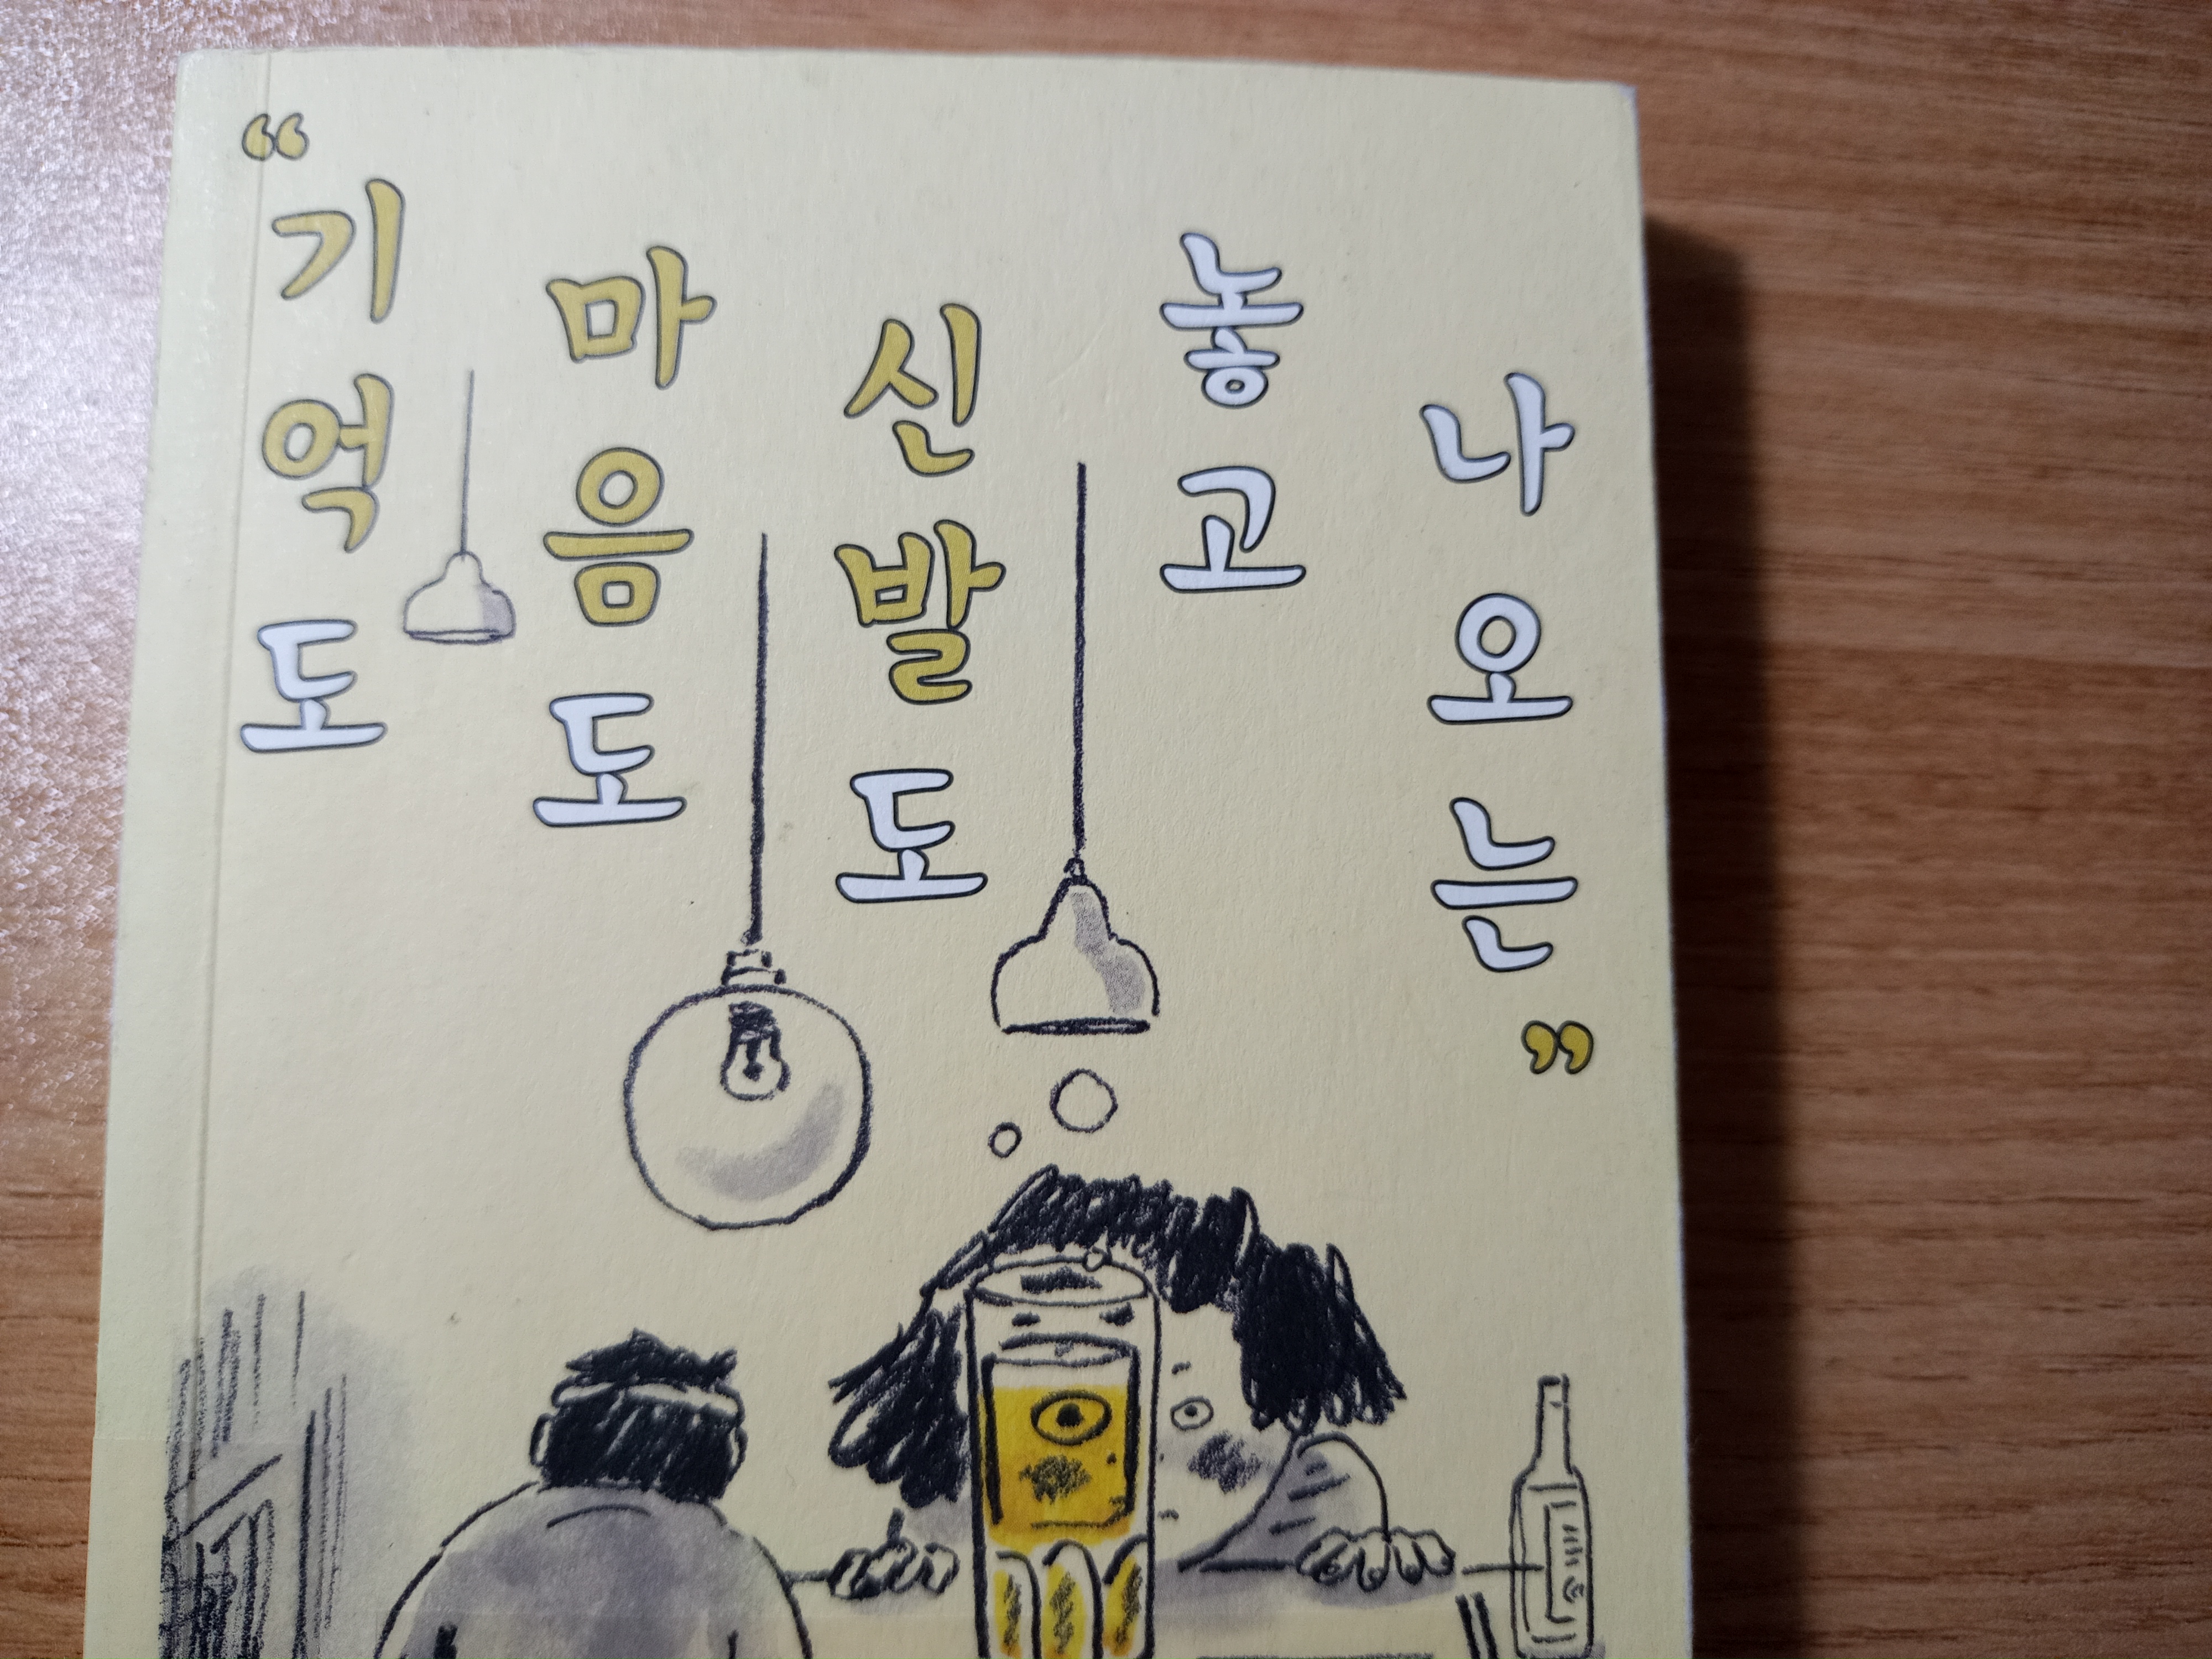 “기억도
마음도
신발도
놓고
나오는”